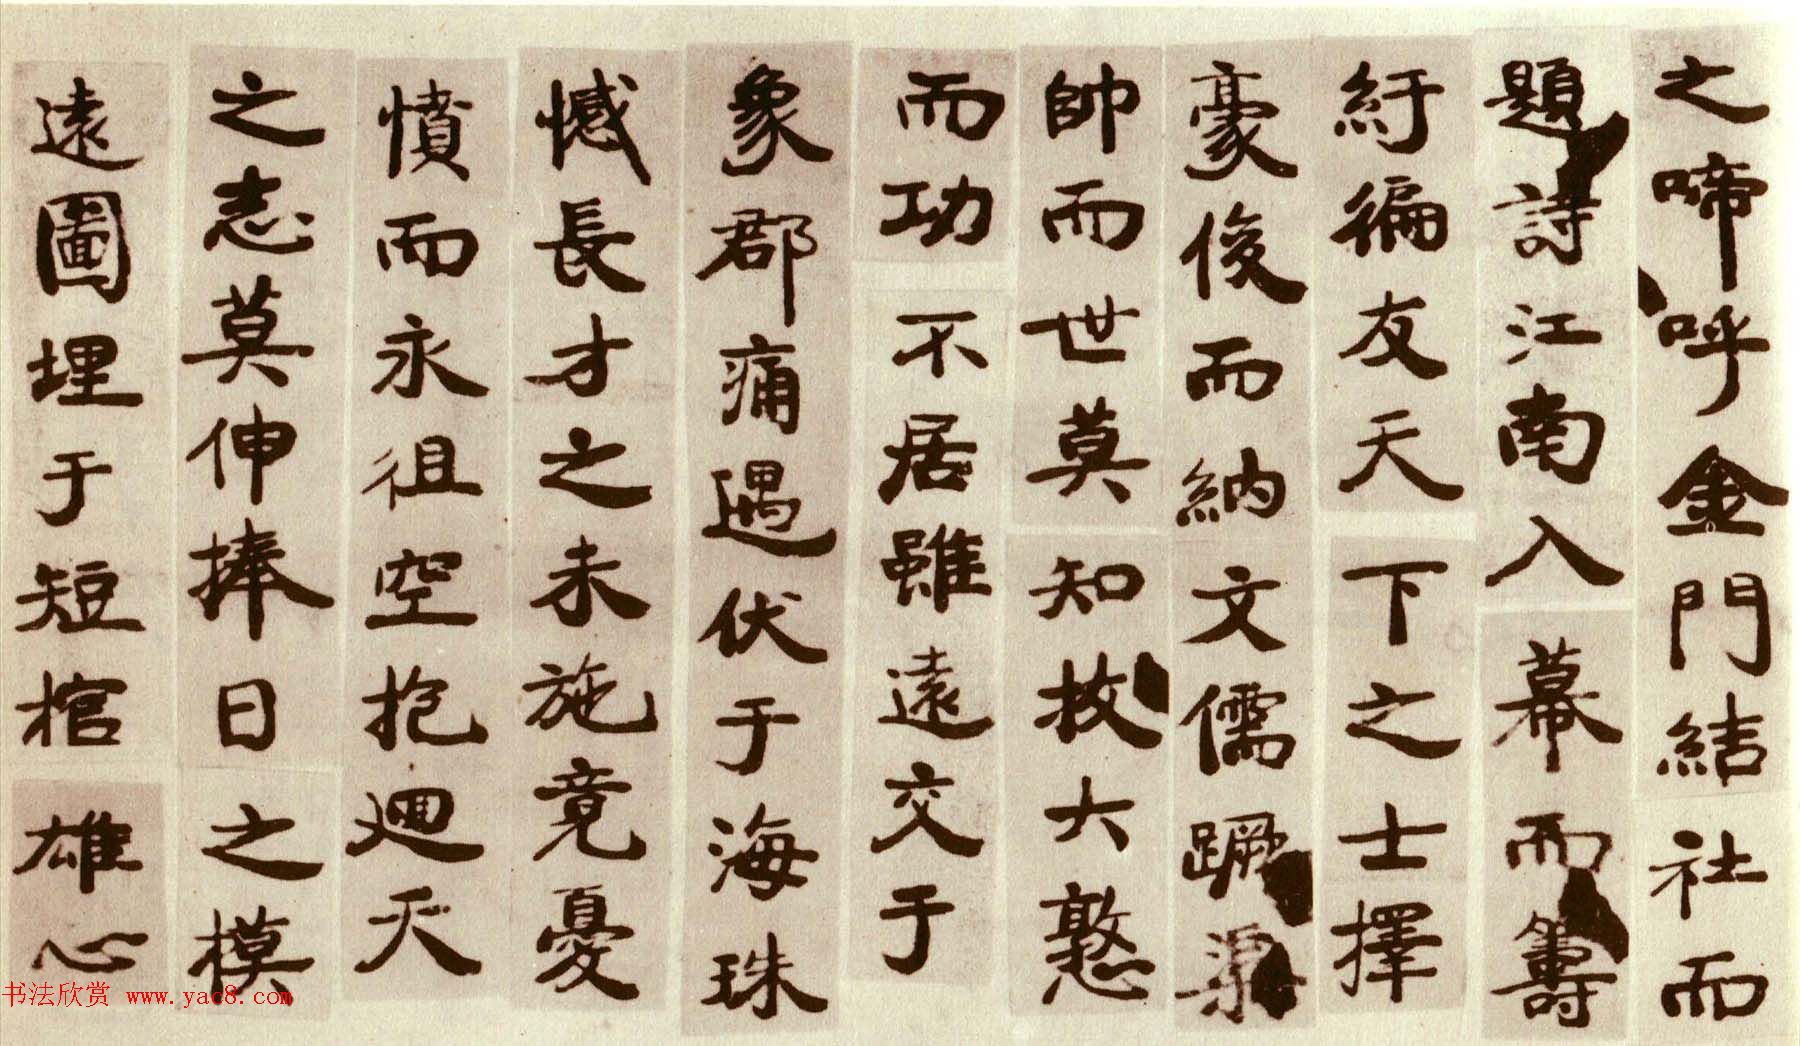 之啼呼金門結社而
題詩江南入幕而籌
紆徧友天下之士擇
豪俊而納文儒蹶渠
帥而世莫知拔大憝
而功不居雖遠交于
象郡痛遇伏于海珠
憾長才之未施竟憂
憤而永徂空抱迴天
之志莫伸捧日之模
遠圖埋于短棺雄心
书法欣赏 www.yac8.com